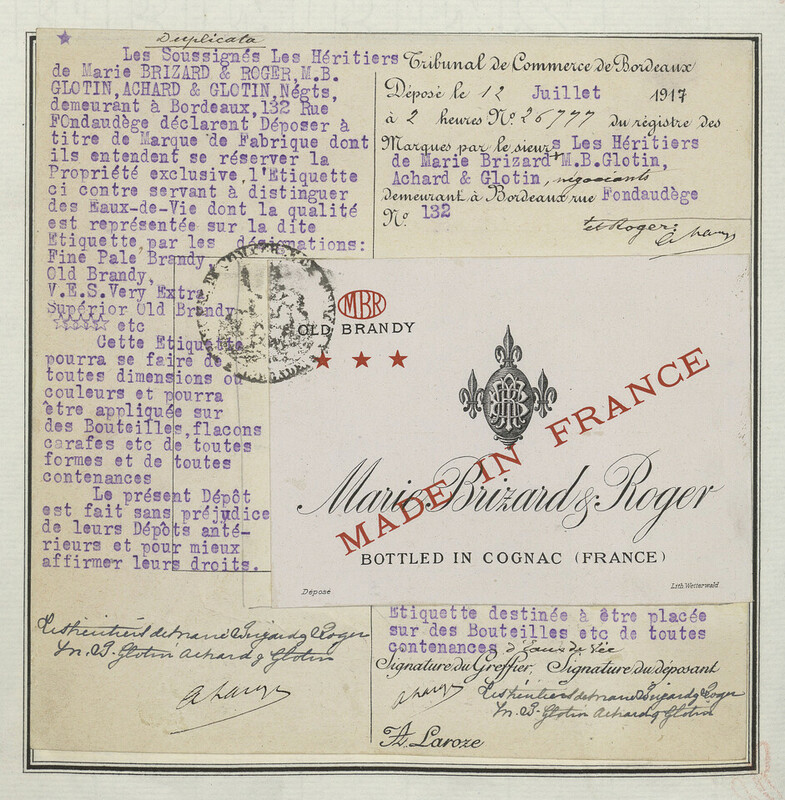 Duplicata
Les Soussignés Les Héritiers
de Marie BRIZARD & ROGER,M.B.
GLOTIN,ACHARD & GLOTIN,Négts,
demeurant à Bordeaux,132 Rue
FOndaudège déclarent Déposer à
titre de Marque de Fabrique dont
ils entendent se réserver la
Propriété exclusive,l'Etiquette
ci contre servant à distinguer
des Eaux-de-Vie dont la qualité
est représentée sur la dite
Etiquette,par les désignations:
Fine Pale Brandy
Old Brandy,
V.E.S.Very Extra
Supérior Old Brandy
☆☆☆☆☆ etc
Cette Etiquette
pourra se faire de
toutes dimensions ou
couleurs et pourra
être appliquée sur
des Bouteilles,flacons
carafes etc de toutes
formes et de toutes
contenances
Le présent Dépôt
est fait sans préjudice
de leurs Dépôts anté-
rieurs et pour mieux
affirmer leurs droits.
Les héritiers de Marie Brizard & Roger
M. B. Glotin Achard & Glotin
Tribunal de Commerce de Bordeaux
Déposé le 12 Juillet 1917
à 2 heures Nº 26777 du régistre des
Marques par le sieurs Les Héritiers
de Marie Brizard M.B.Glotin,
Achard & Glotin, négociants
demeurant à Bordeaux rue Fondaudège
Nº 132
et Roger.
MBR
OLD BRANDY
★ ★ ★
MADE IN FRANCE
Marie Brizard & Roger
BOTTLED IN COGNAC (FRANCE)
Déposé
Lith. Wetterwald
Etiquette destinée à être placée
sur des Bouteilles etc de toutes
contenances d'eaux de vie
Signature du Greffier, Signature du déposant
Les héritiers de Marie Brizard & Roger
M. B. Glotin Achard & Glotin
A. Laroze